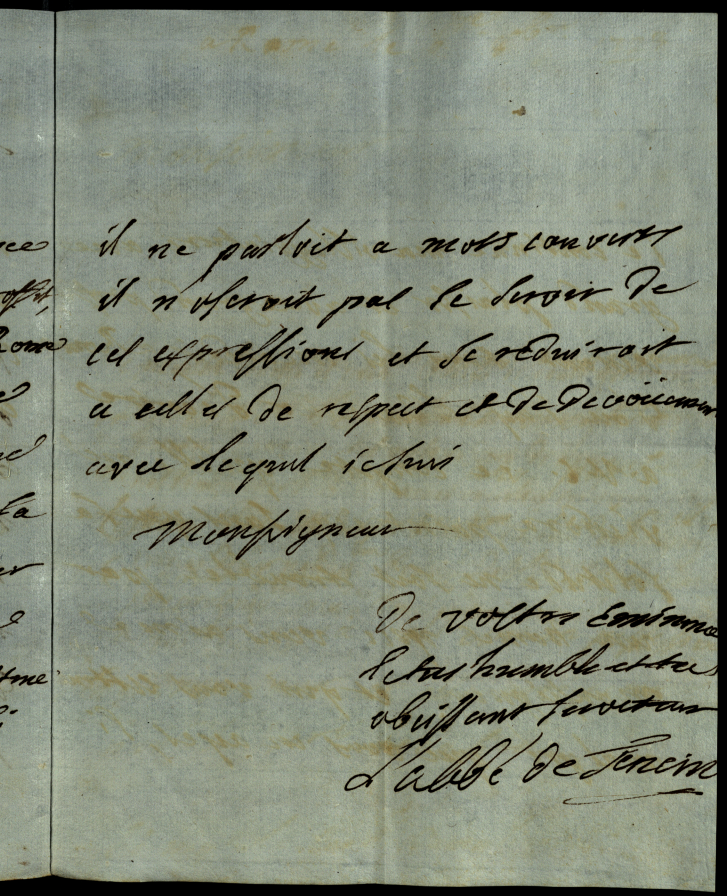 il ne parloit a mots couverts
il n'oseroit pas se servir de
ces expressions et se reduiroit
a celles de respect et de devoüement
avec lequel je suis
Monseigneur
De vostre Eminence
le tres humble et tres
obeissant serviteur
L'abbé de Tencin